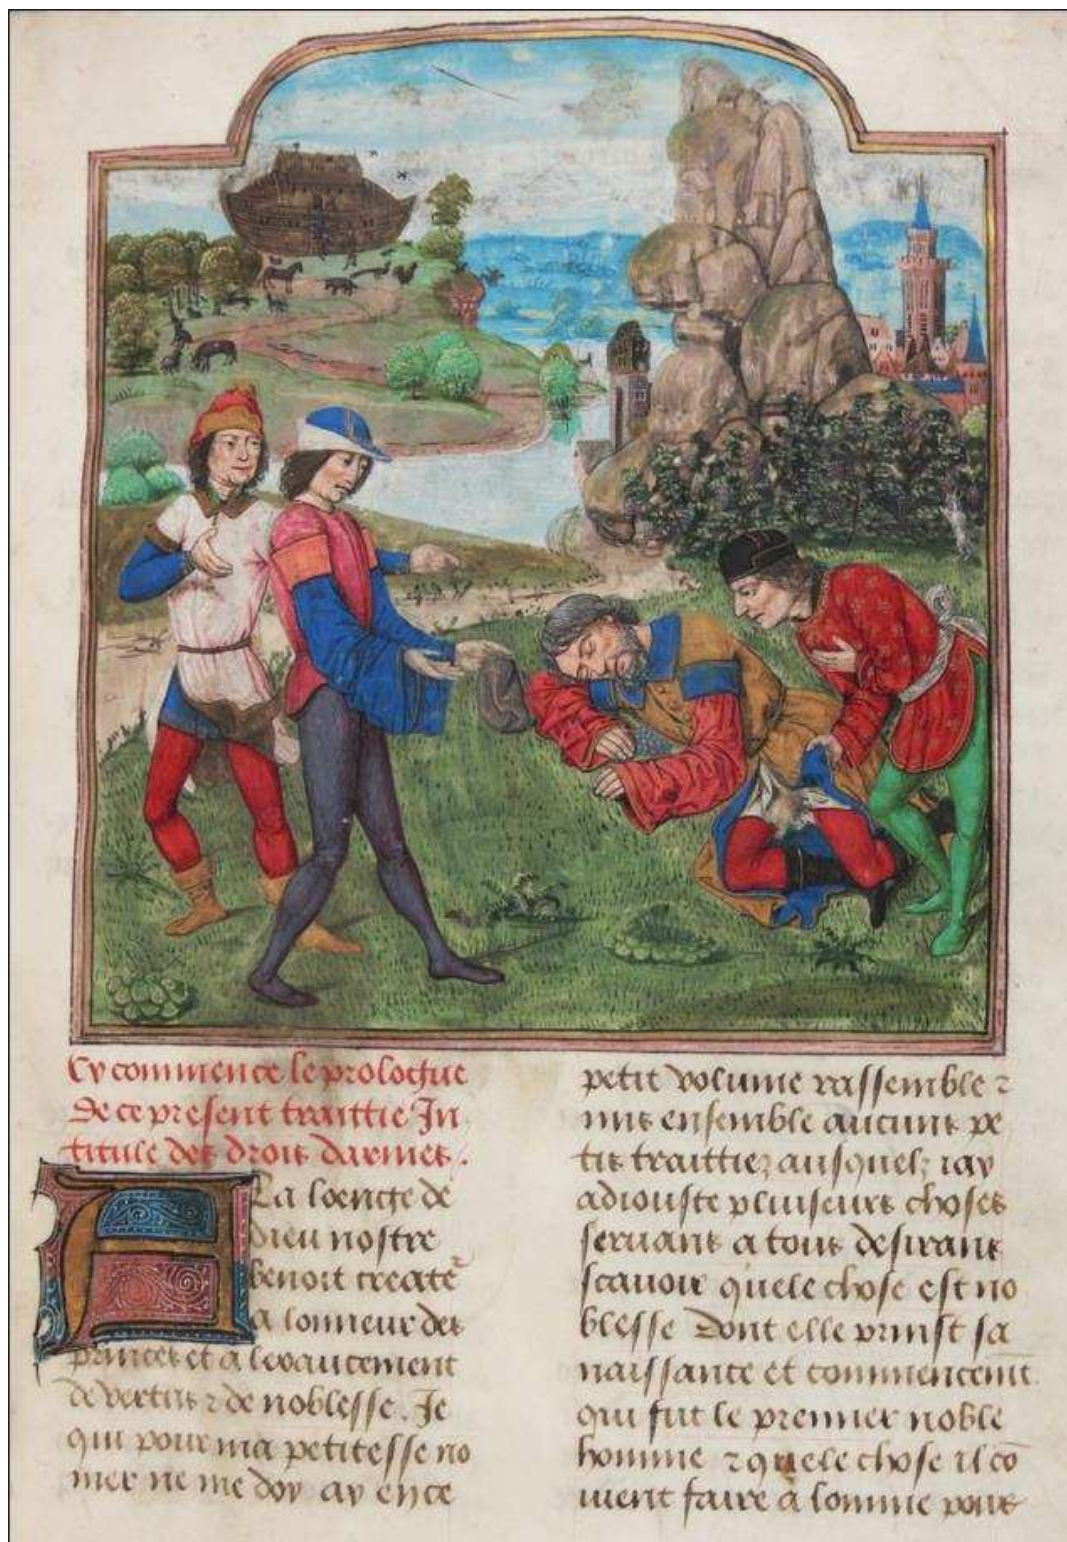 Cy commence le prologue
de ce present traittie In
titule des drois darmes.
A La loenge de
dieu nostre
benoit creatē
a lonneur des
princes et a lexaucement
de vertus ⁊ de noblesse. Je
qui pour ma petitesse no
mer ne me doy ay en ce
petit volume rassemble ⁊
mis ensemble aucuns pe
tis traittiez ausquelz iay
adiouste pluiseurs choses
seruans a tous desirans
scauoir quele chose est no
blesse Dont elle prinst sa
naissance et commencemt̄
qui fut le premier noble
homme ⁊ quele chose il cō
uient faire a lomme pour